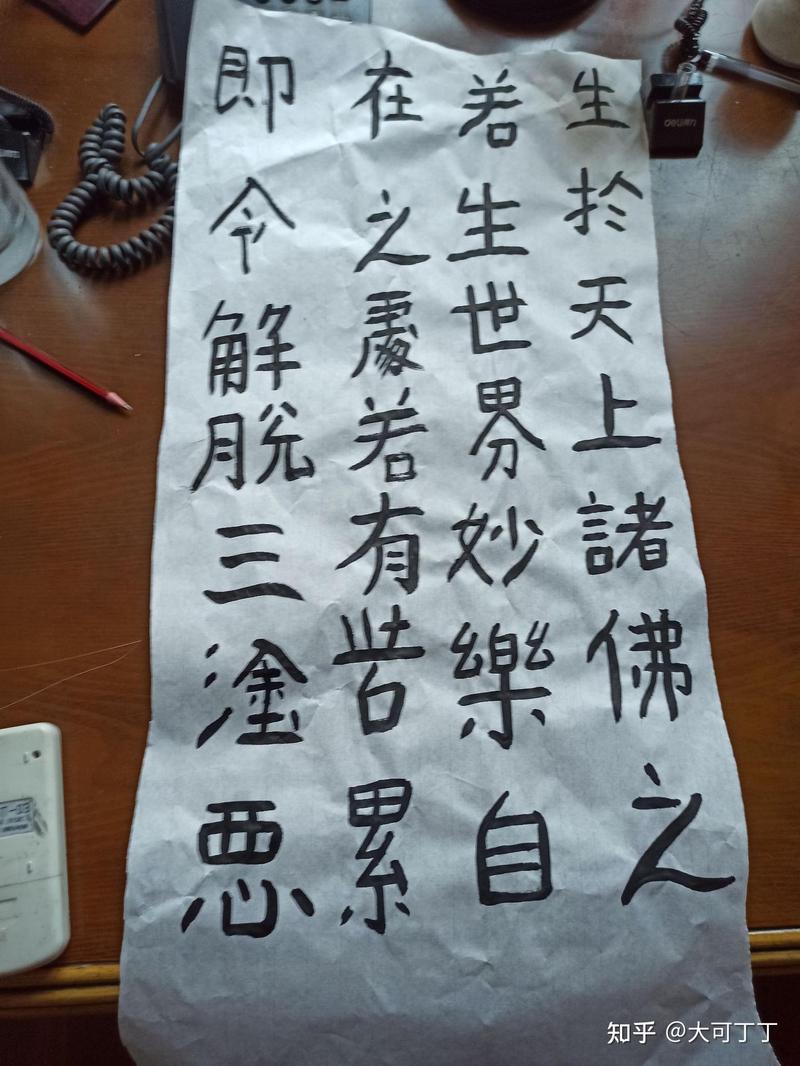 生於天上諸佛之
若生世界妙樂自
在之處若有苦累
即令解脱三塗惡
deli
知乎 @大可丁丁